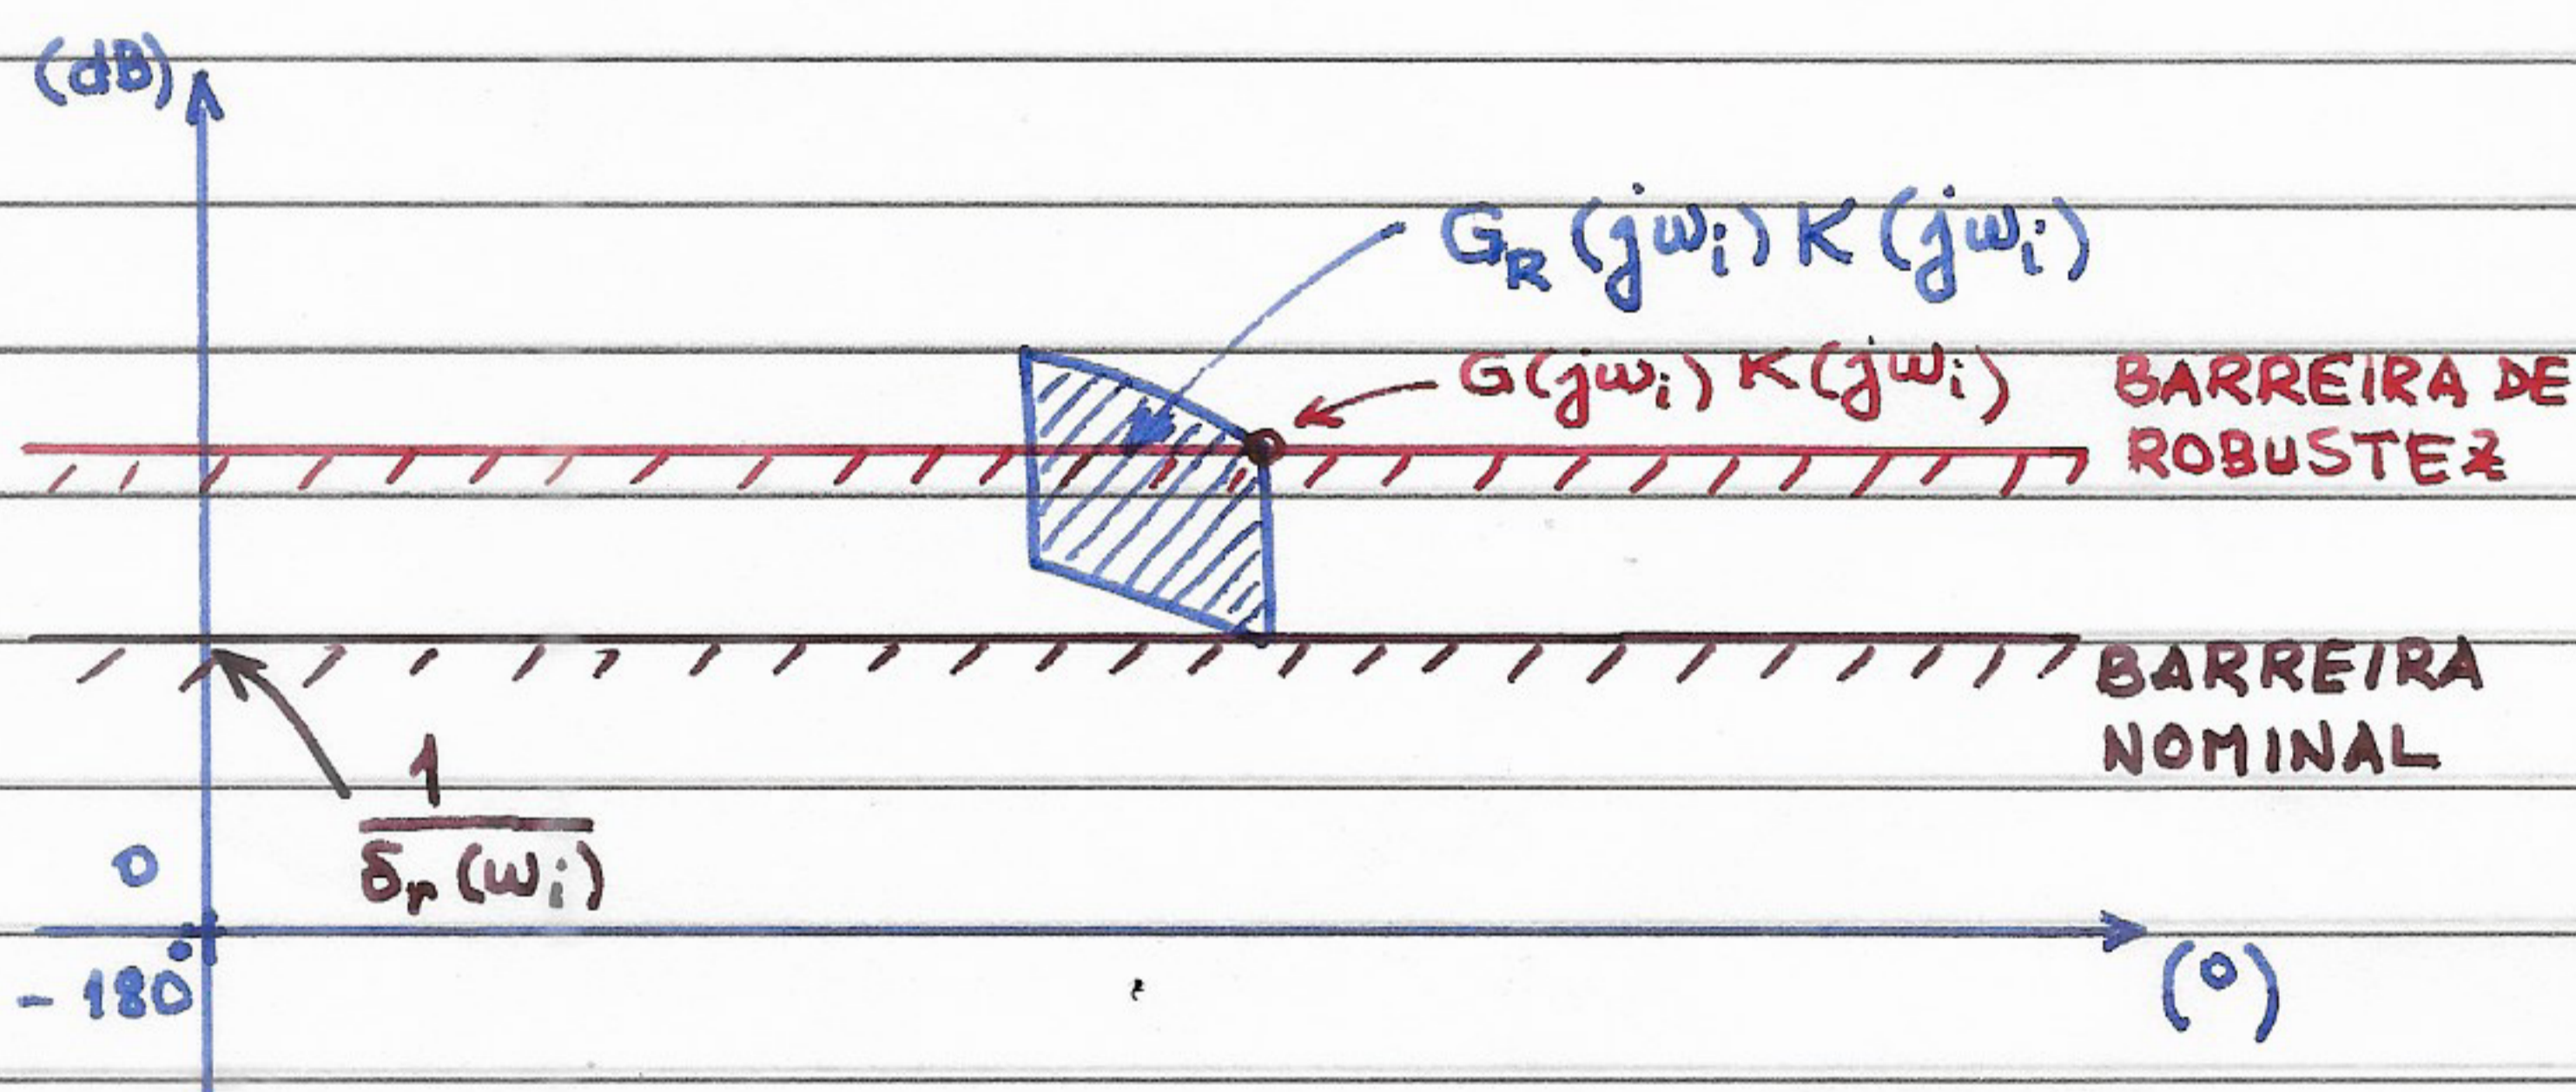 (dB)
G_R (jω_i) K (jω_i)
G(jω_i) K(jω_i)
BARREIRA DE
ROBUSTEZ
BARREIRA
NOMINAL
1
δ_r (ω_i)
0
- 180°
(°)